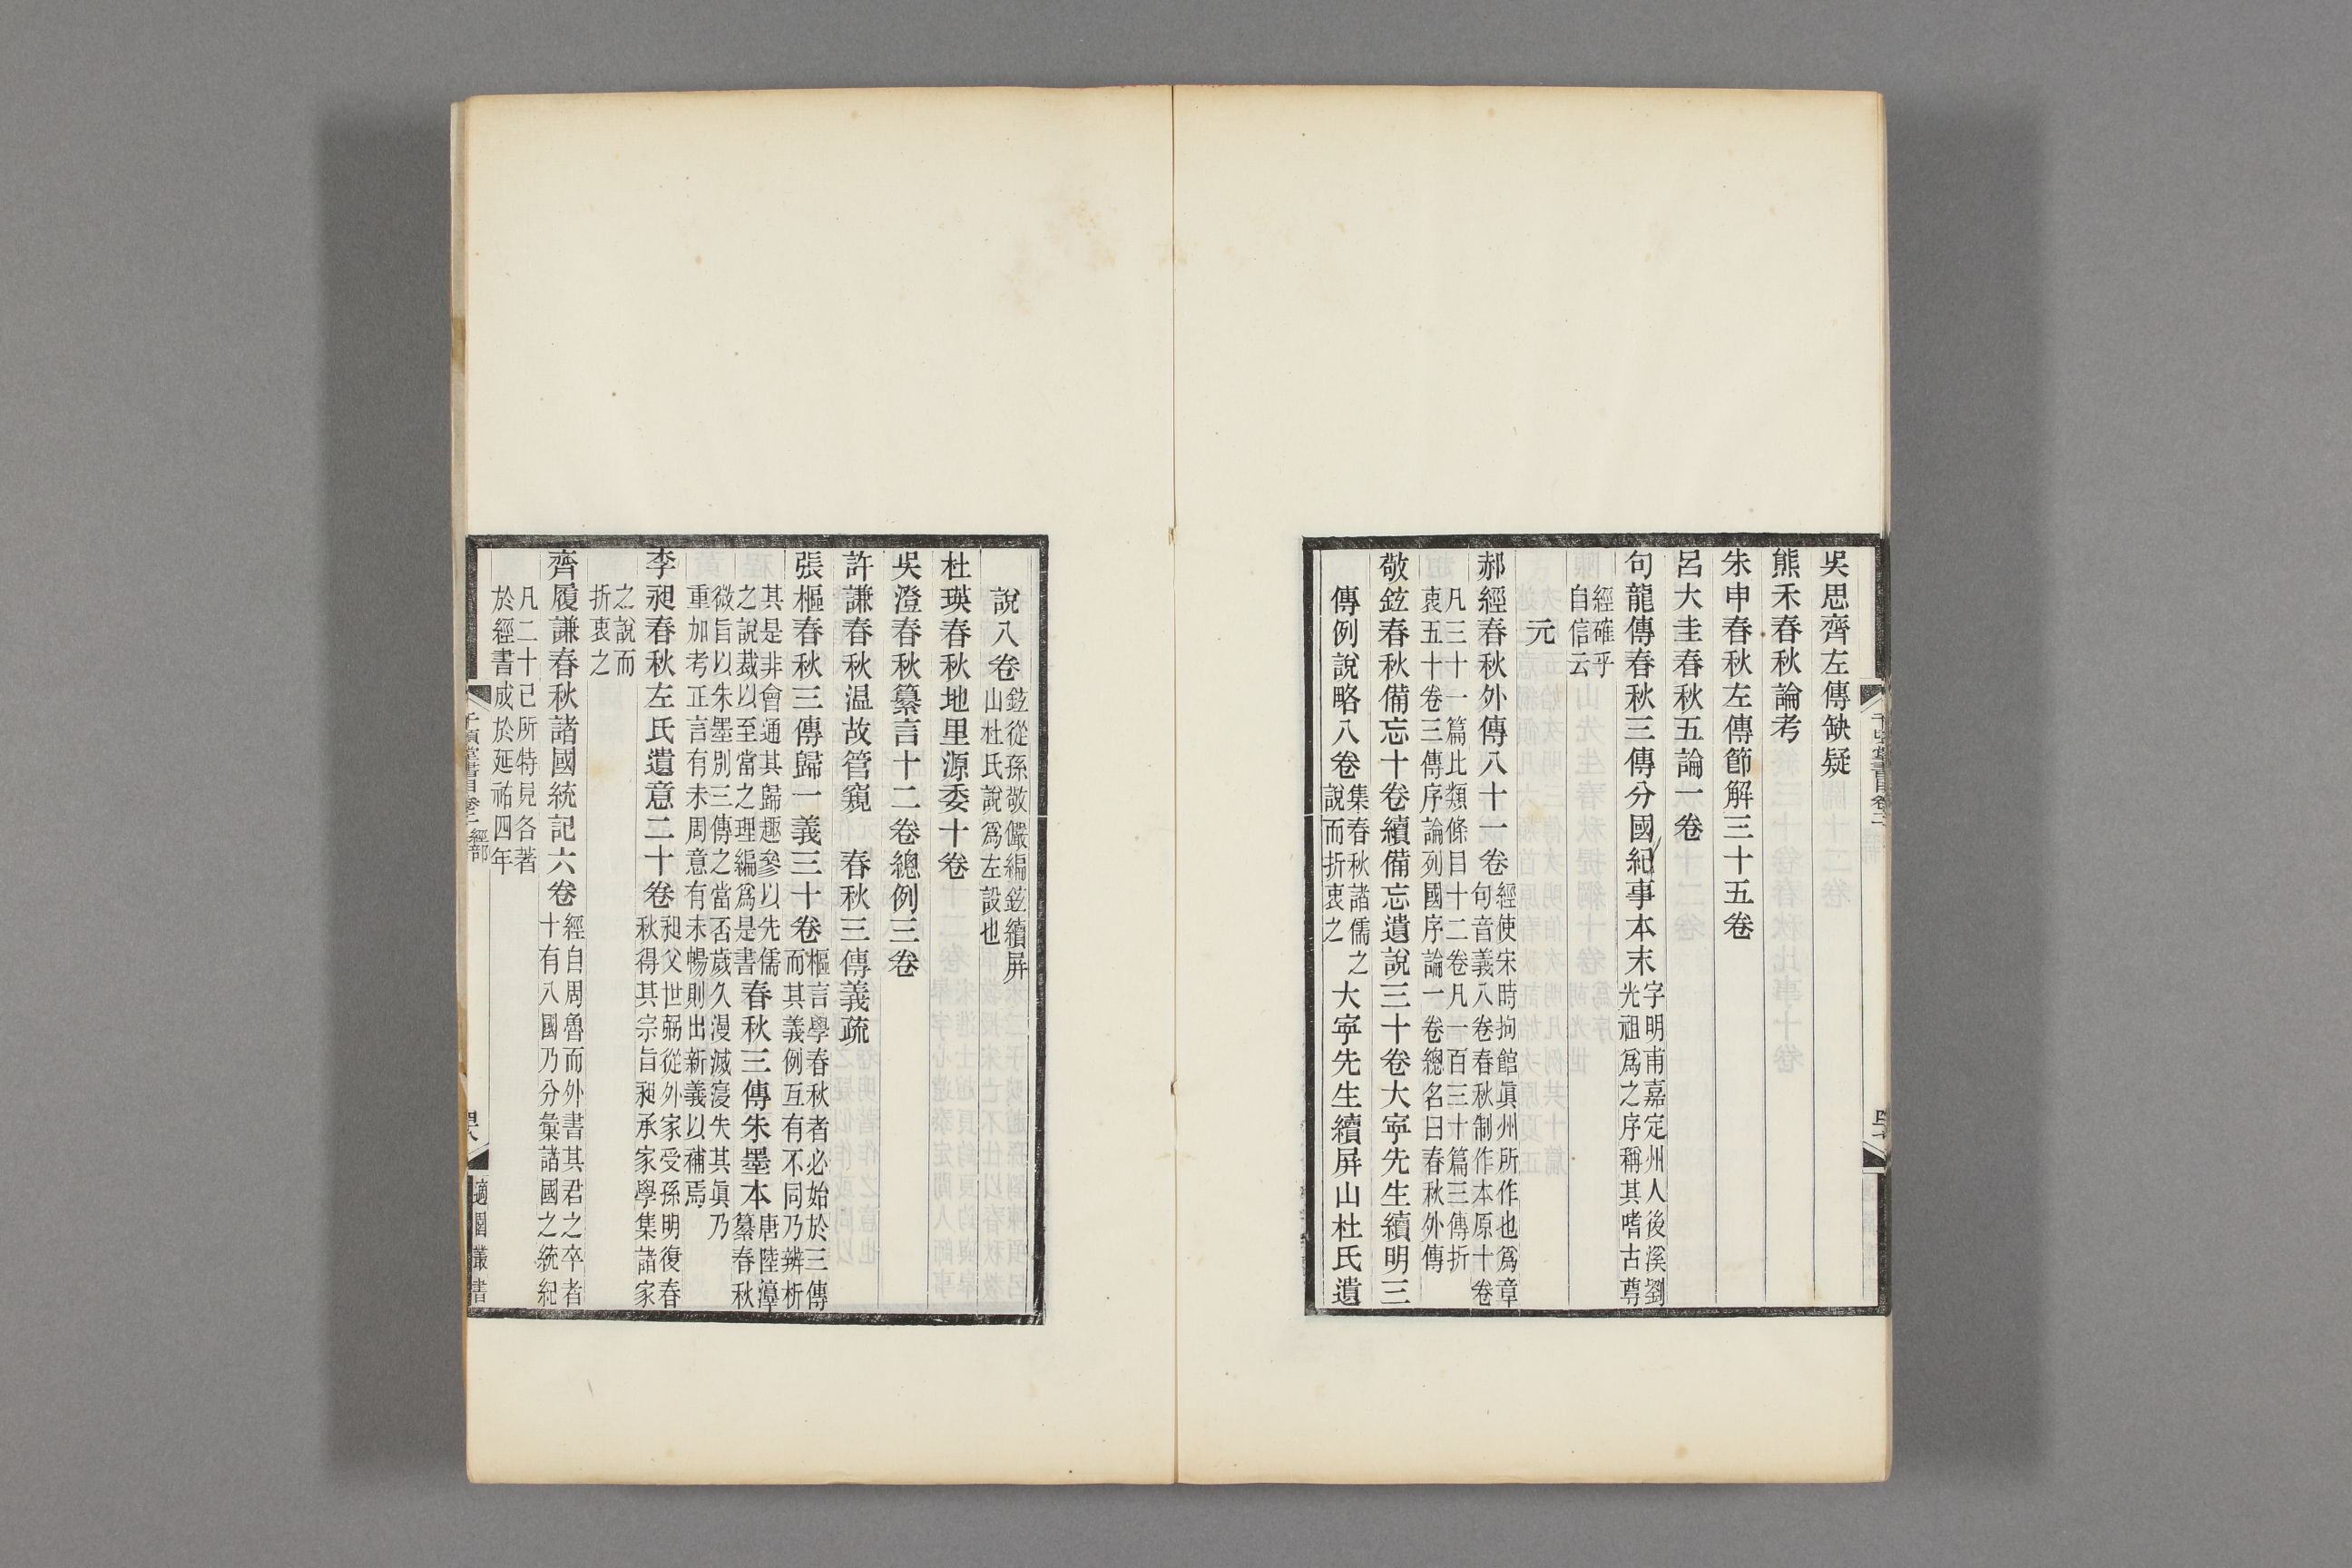 吳思齊左傳缺疑
熊禾春秋論考
朱申春秋左傳節解三十五卷
呂大圭春秋五論一卷
句龍傳春秋三傳分國紀事本末字明甫嘉定州人後溪劉
光祖爲之序稱其嗜古尊
經確乎
自信云
元
郝經春秋外傳八十一卷經使宋時拘館眞州所作也爲章
句音義八卷春秋制作本原十卷
凡三十一篇比類條目十二卷凡一百三十篇三傳折
衷五十卷三傳序論列國序論一卷總名曰春秋外傳
敬鉉春秋備忘十卷續備忘遺說三十卷大寧先生續明三
傳例說略八卷集春秋諸儒之
說而折衷之
大寧先生續屏山杜氏遺
說八卷鉉從孫敬儼編鉉續屏
山杜氏說爲左設也
杜瑛春秋地里源委十卷
吳澄春秋纂言十二卷總例三卷
許謙春秋温故管窺 春秋三傳義疏
張樞春秋三傳歸一義三十卷樞言學春秋者必始於三傳
而其義例互有不同乃辨析
其是非會通其歸趣參以先儒
之說裁以至當之理編爲是書
春秋三傳朱墨本唐陸湻
纂春秋
微旨以朱墨別三傳之當否歲久漫滅寖失其眞乃
重加考正言有未周意有未暢則出新義以補焉
李昶春秋左氏遺意二十卷昶父世弼從外家受孫明復春
秋得其宗旨昶承家學集諸家
之說而
折衷之
齊履謙春秋諸國統記六卷經自周魯而外書其君之卒者
十有八國乃分彙諸國之統紀
凡二十已所特見各著
於經書成於延祐四年
千頃堂書目卷二 經部
適園叢書